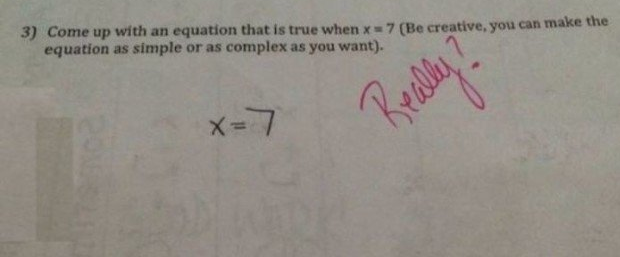 3) Come up with an equation that is true when x = 7 (Be creative, you can make the
equation as simple or as complex as you want).
Really?
x=7